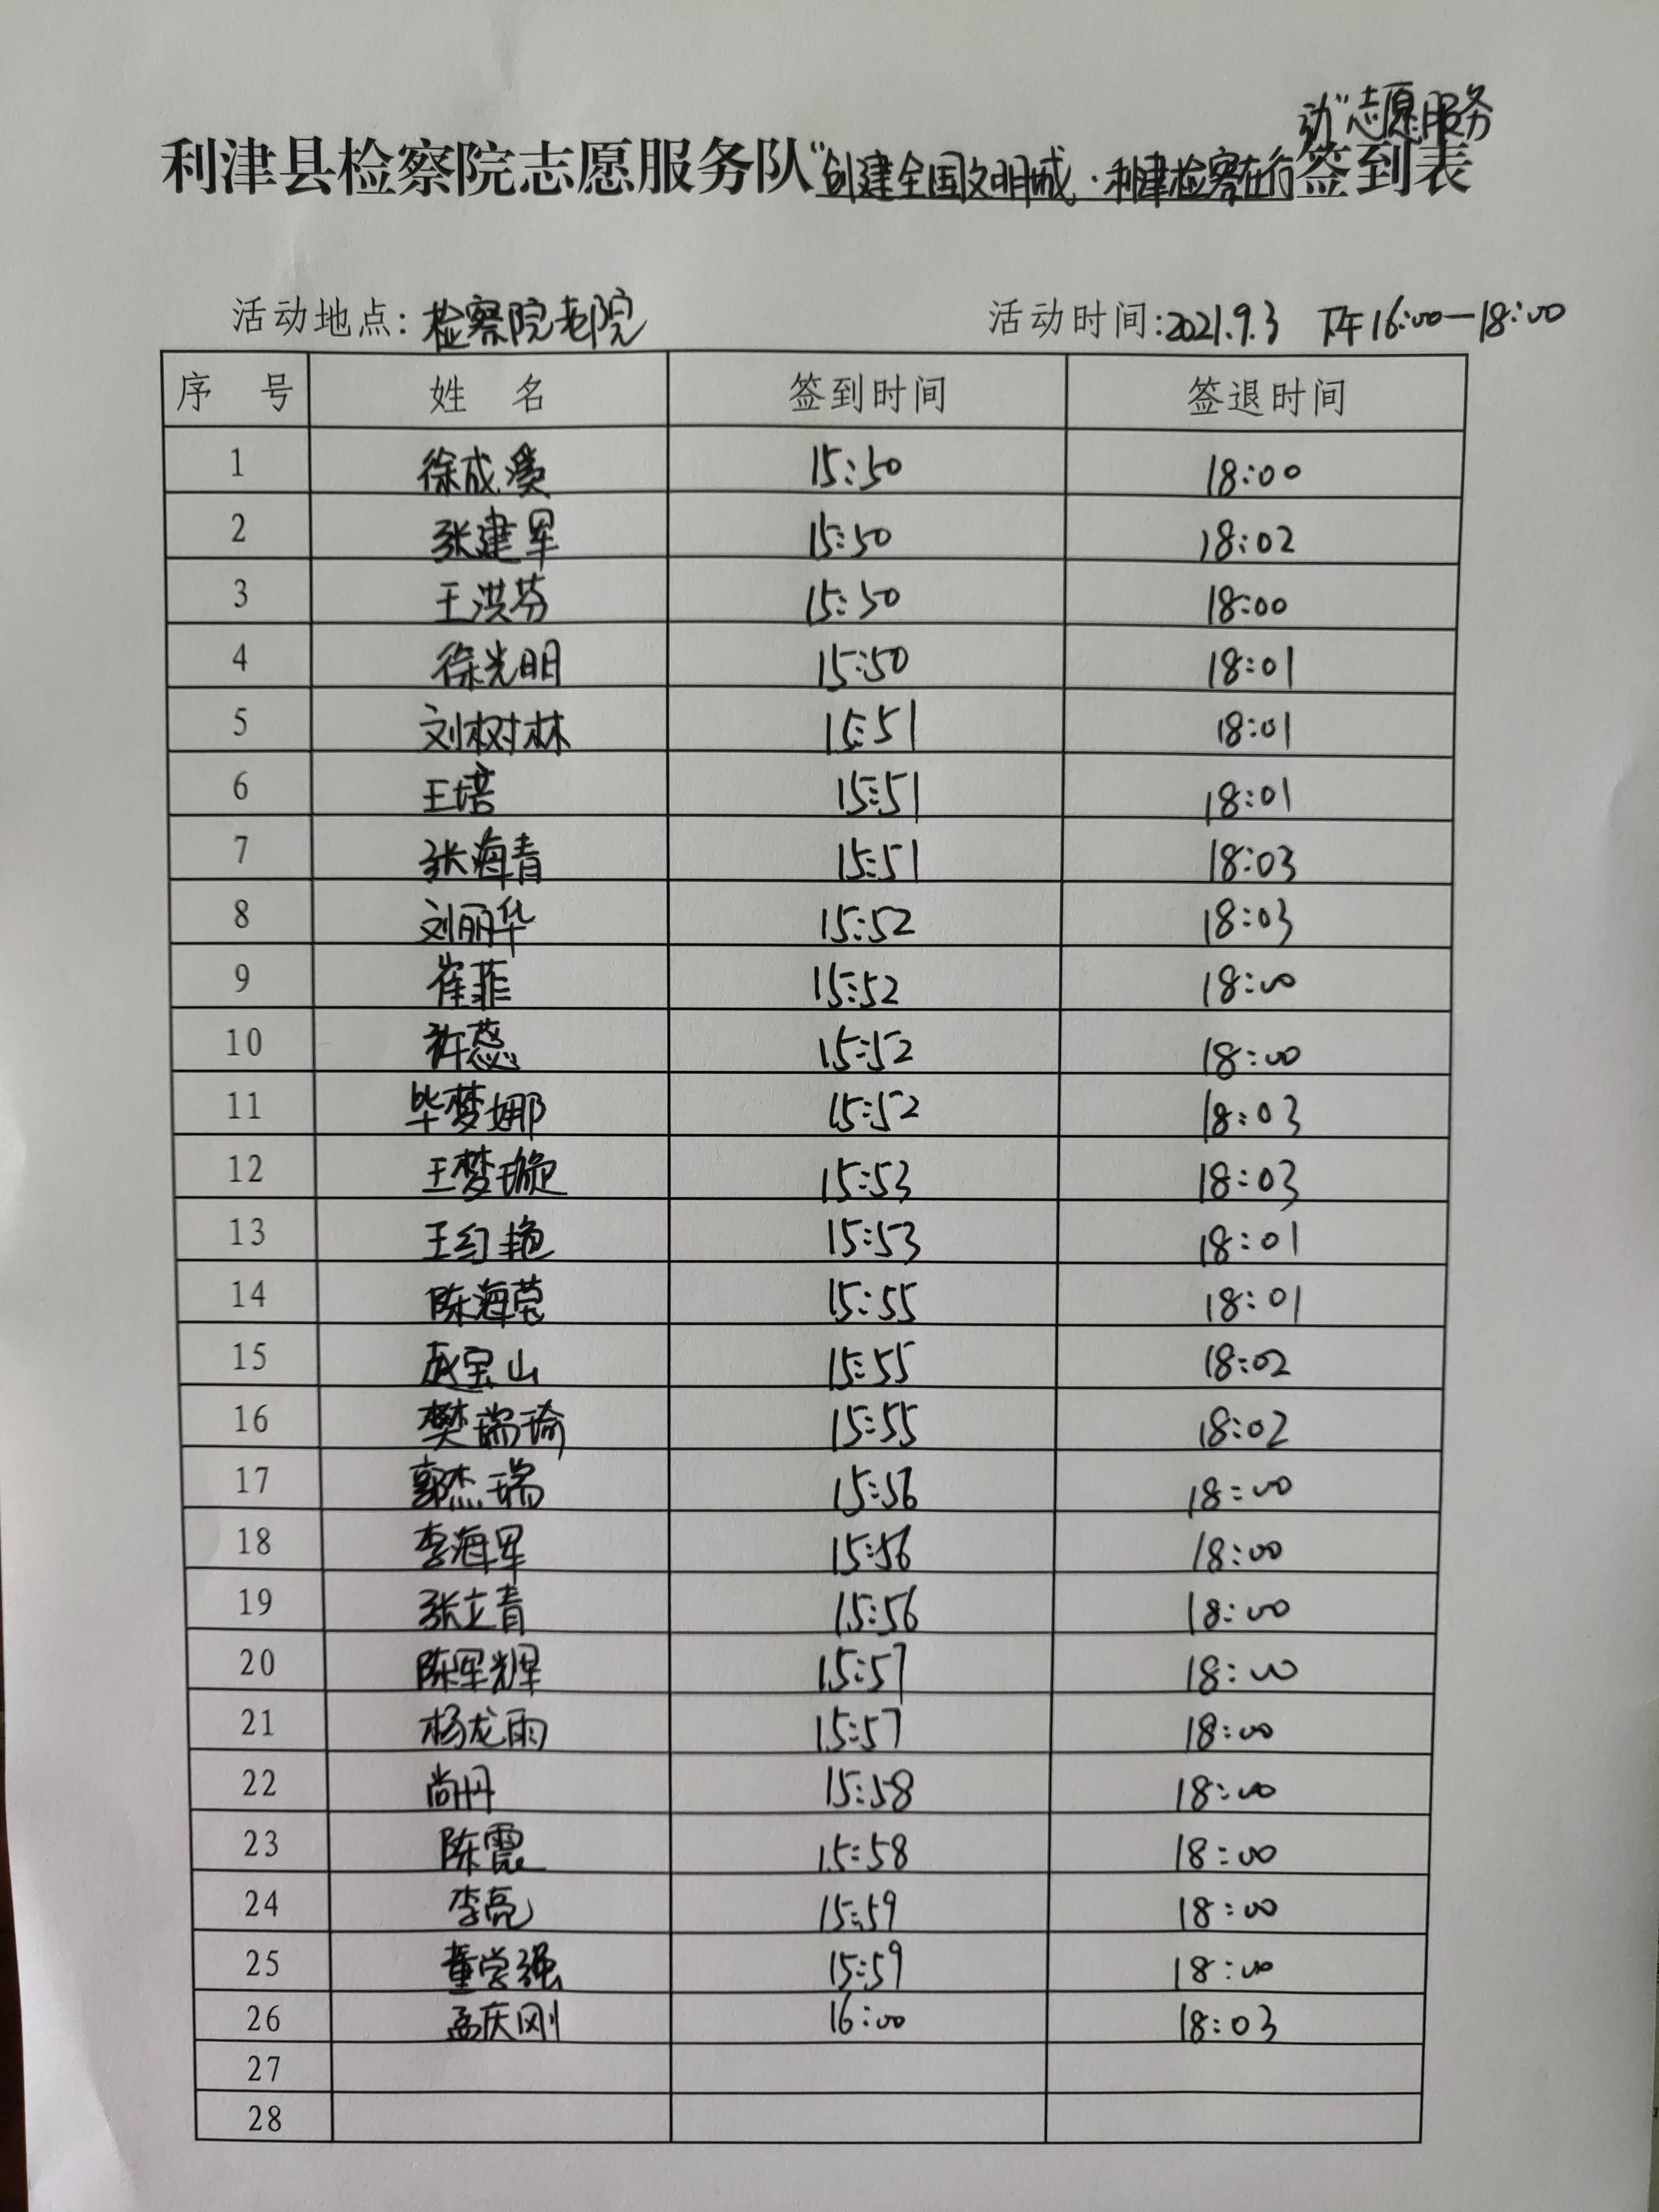 动”志愿服务
利津县检察院志愿服务队“创建全国文明城·利津检察在行签到表
活动地点：检察院老院 活动时间：2021.9.3 下午16:00—18:00
序号 姓名 签到时间 签退时间
1 徐成 15:50 18:00
2 张建军 15:50 18:02
3 王洪芬 15:50 18:00
4 徐光明 15:50 18:01
5 刘树林 15:51 18:01
6 王培 15:51 18:01
7 张海青 15:51 18:03
8 刘丽华 15:52 18:03
9 崔菲 15:52 18:00
10 许蕊 15:52 18:00
11 毕梦娜 15:52 18:03
12 王梦璇 15:53 18:03
13 王红艳 15:53 18:01
14 陈海莹 15:55 18:01
15 赵宝山 15:55 18:02
16 樊瑞瑜 15:55 18:02
17 郭杰瑞 15:56 18:00
18 李海军 15:56 18:00
19 张立青 15:56 18:00
20 陈军辉 15:57 18:00
21 杨龙雨 15:57 18:00
22 尚丹 15:58 18:00
23 陈霞 15:58 18:00
24 李亮 15:59 18:00
25 董学强 15:59 18:00
26 孟庆刚 16:00 18:03
27
28